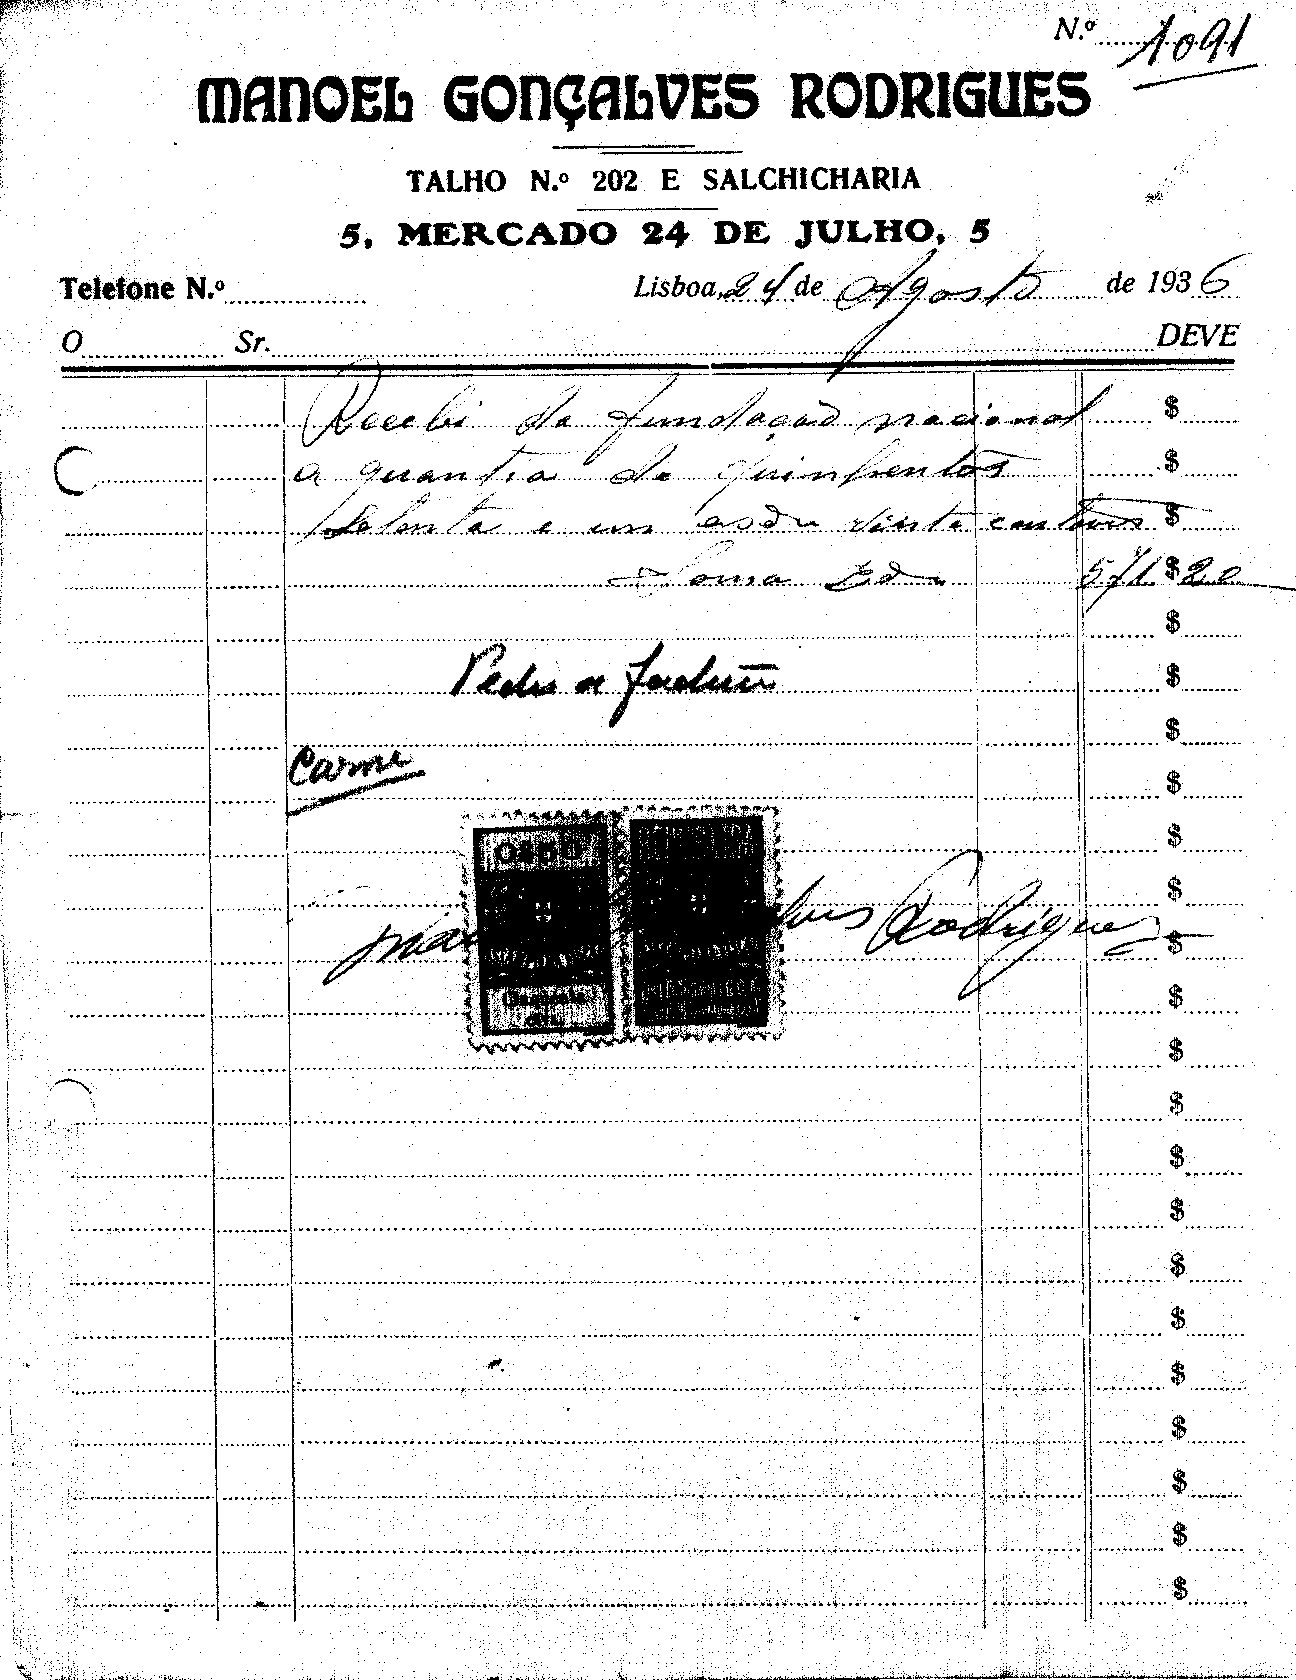 N.º 1091
MANOEL GONÇALVES RODRIGUES
TALHO N.º 202 E SALCHICHARIA
5, MERCADO 24 DE JULHO, 5
Telefone N.º
Lisboa, 24 de Agosto de 1936
O Sr. DEVE
Recebi da fundação nacional $
a quantia de quinhentos $
setenta e um escudos vinte centavos $
Soma 571$20
$
Pedro de $
$
Carme
$
$
0$50
$
Rodrigues $
$
$
$
$
$
$
$
$
$
$
$
$
$